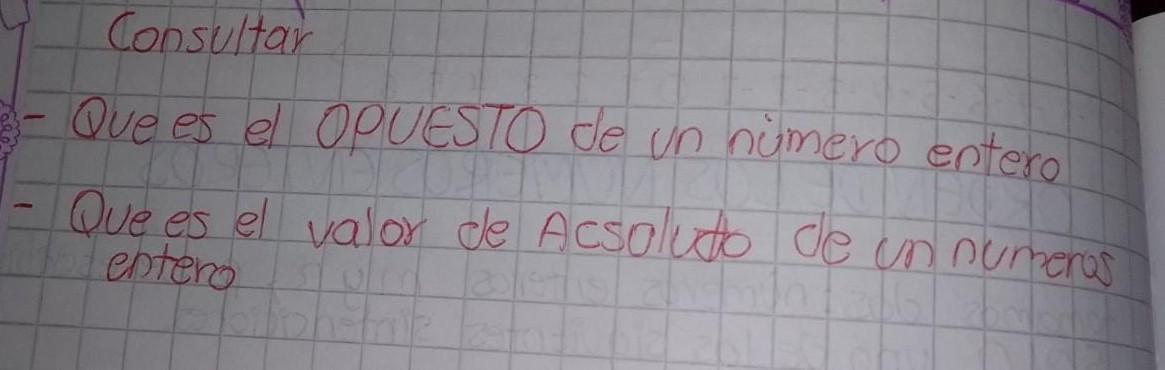 Consultar
- Que es el OPUESTO de un número entero
- Que es el valor de Acsoluto de un numeros
entero